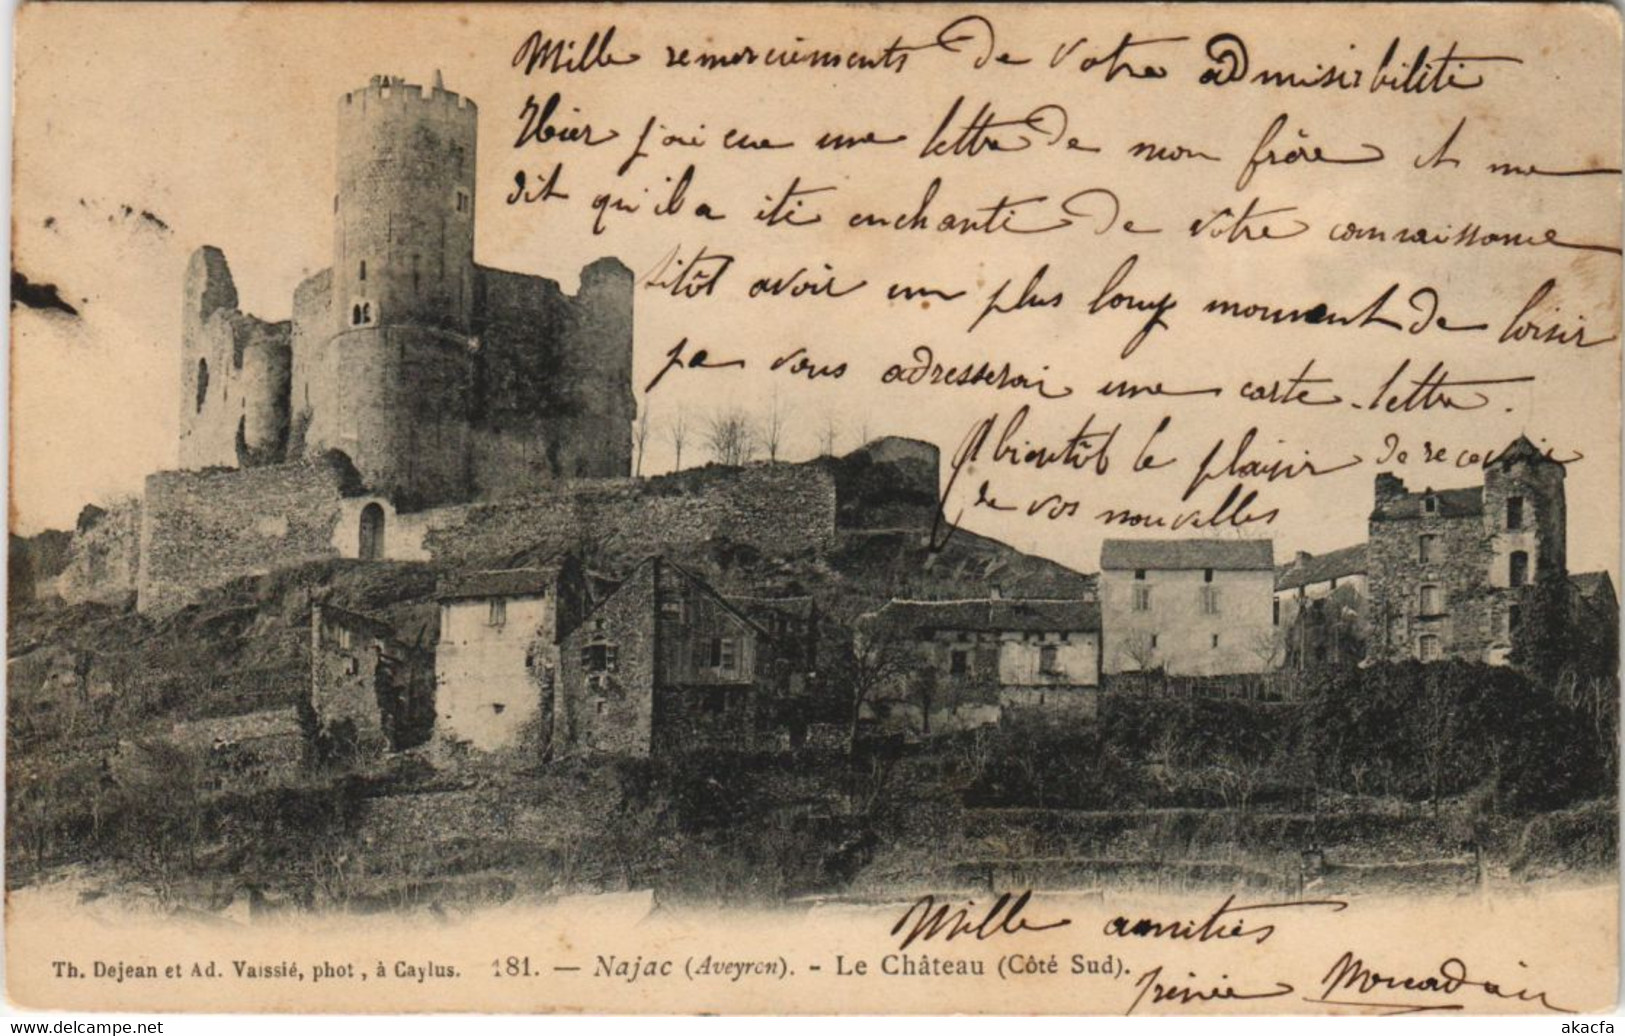 Mille remerciements de votre admisirbilité
Hier j'ai eue une lettre de mon frère et me
dit qu'il a été enchanté de vôtre connaissance
sitôt avoir un plus long moment de loisir
je vous adresserai une carte-lettre.
A bientôt le plaisir de recevoir
de vos nouvelles
Mille amitiés
Irénée
Th. Dejean et Ad. Vaissié, phot, à Caylus. 181. — Najac (Aveyron). - Le Château (Côté Sud).
akacfa